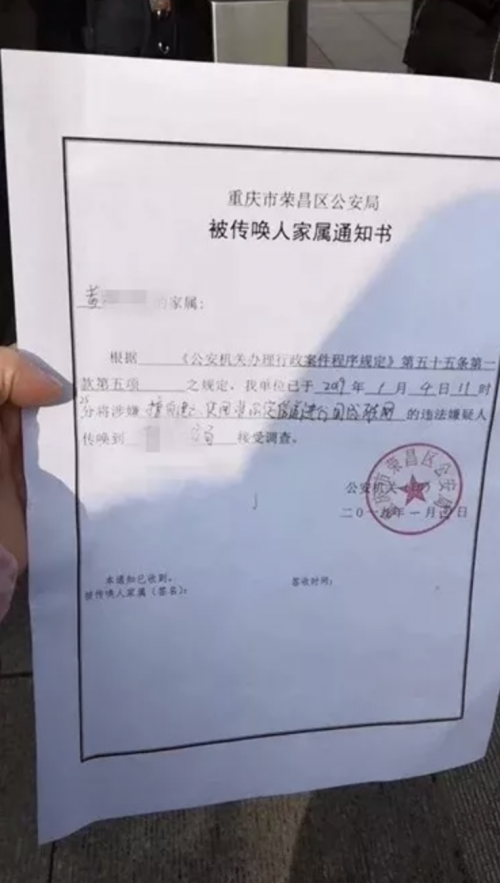 重庆市荣昌区公安局
被传唤人家属通知书
黄 的家属:
根据 《公安机关办理行政案件程序规定》第五十五条第一
款第五项 之规定,我单位已于2019年1月4日11时
25分将涉嫌 进行国际联网 的违法嫌疑人
传唤到 局 接受调查。
公安机关(印)
二〇一九年一月四日
重庆市荣昌区公安局
本通知已收到。
被传唤人家属(签名): 签收时间: